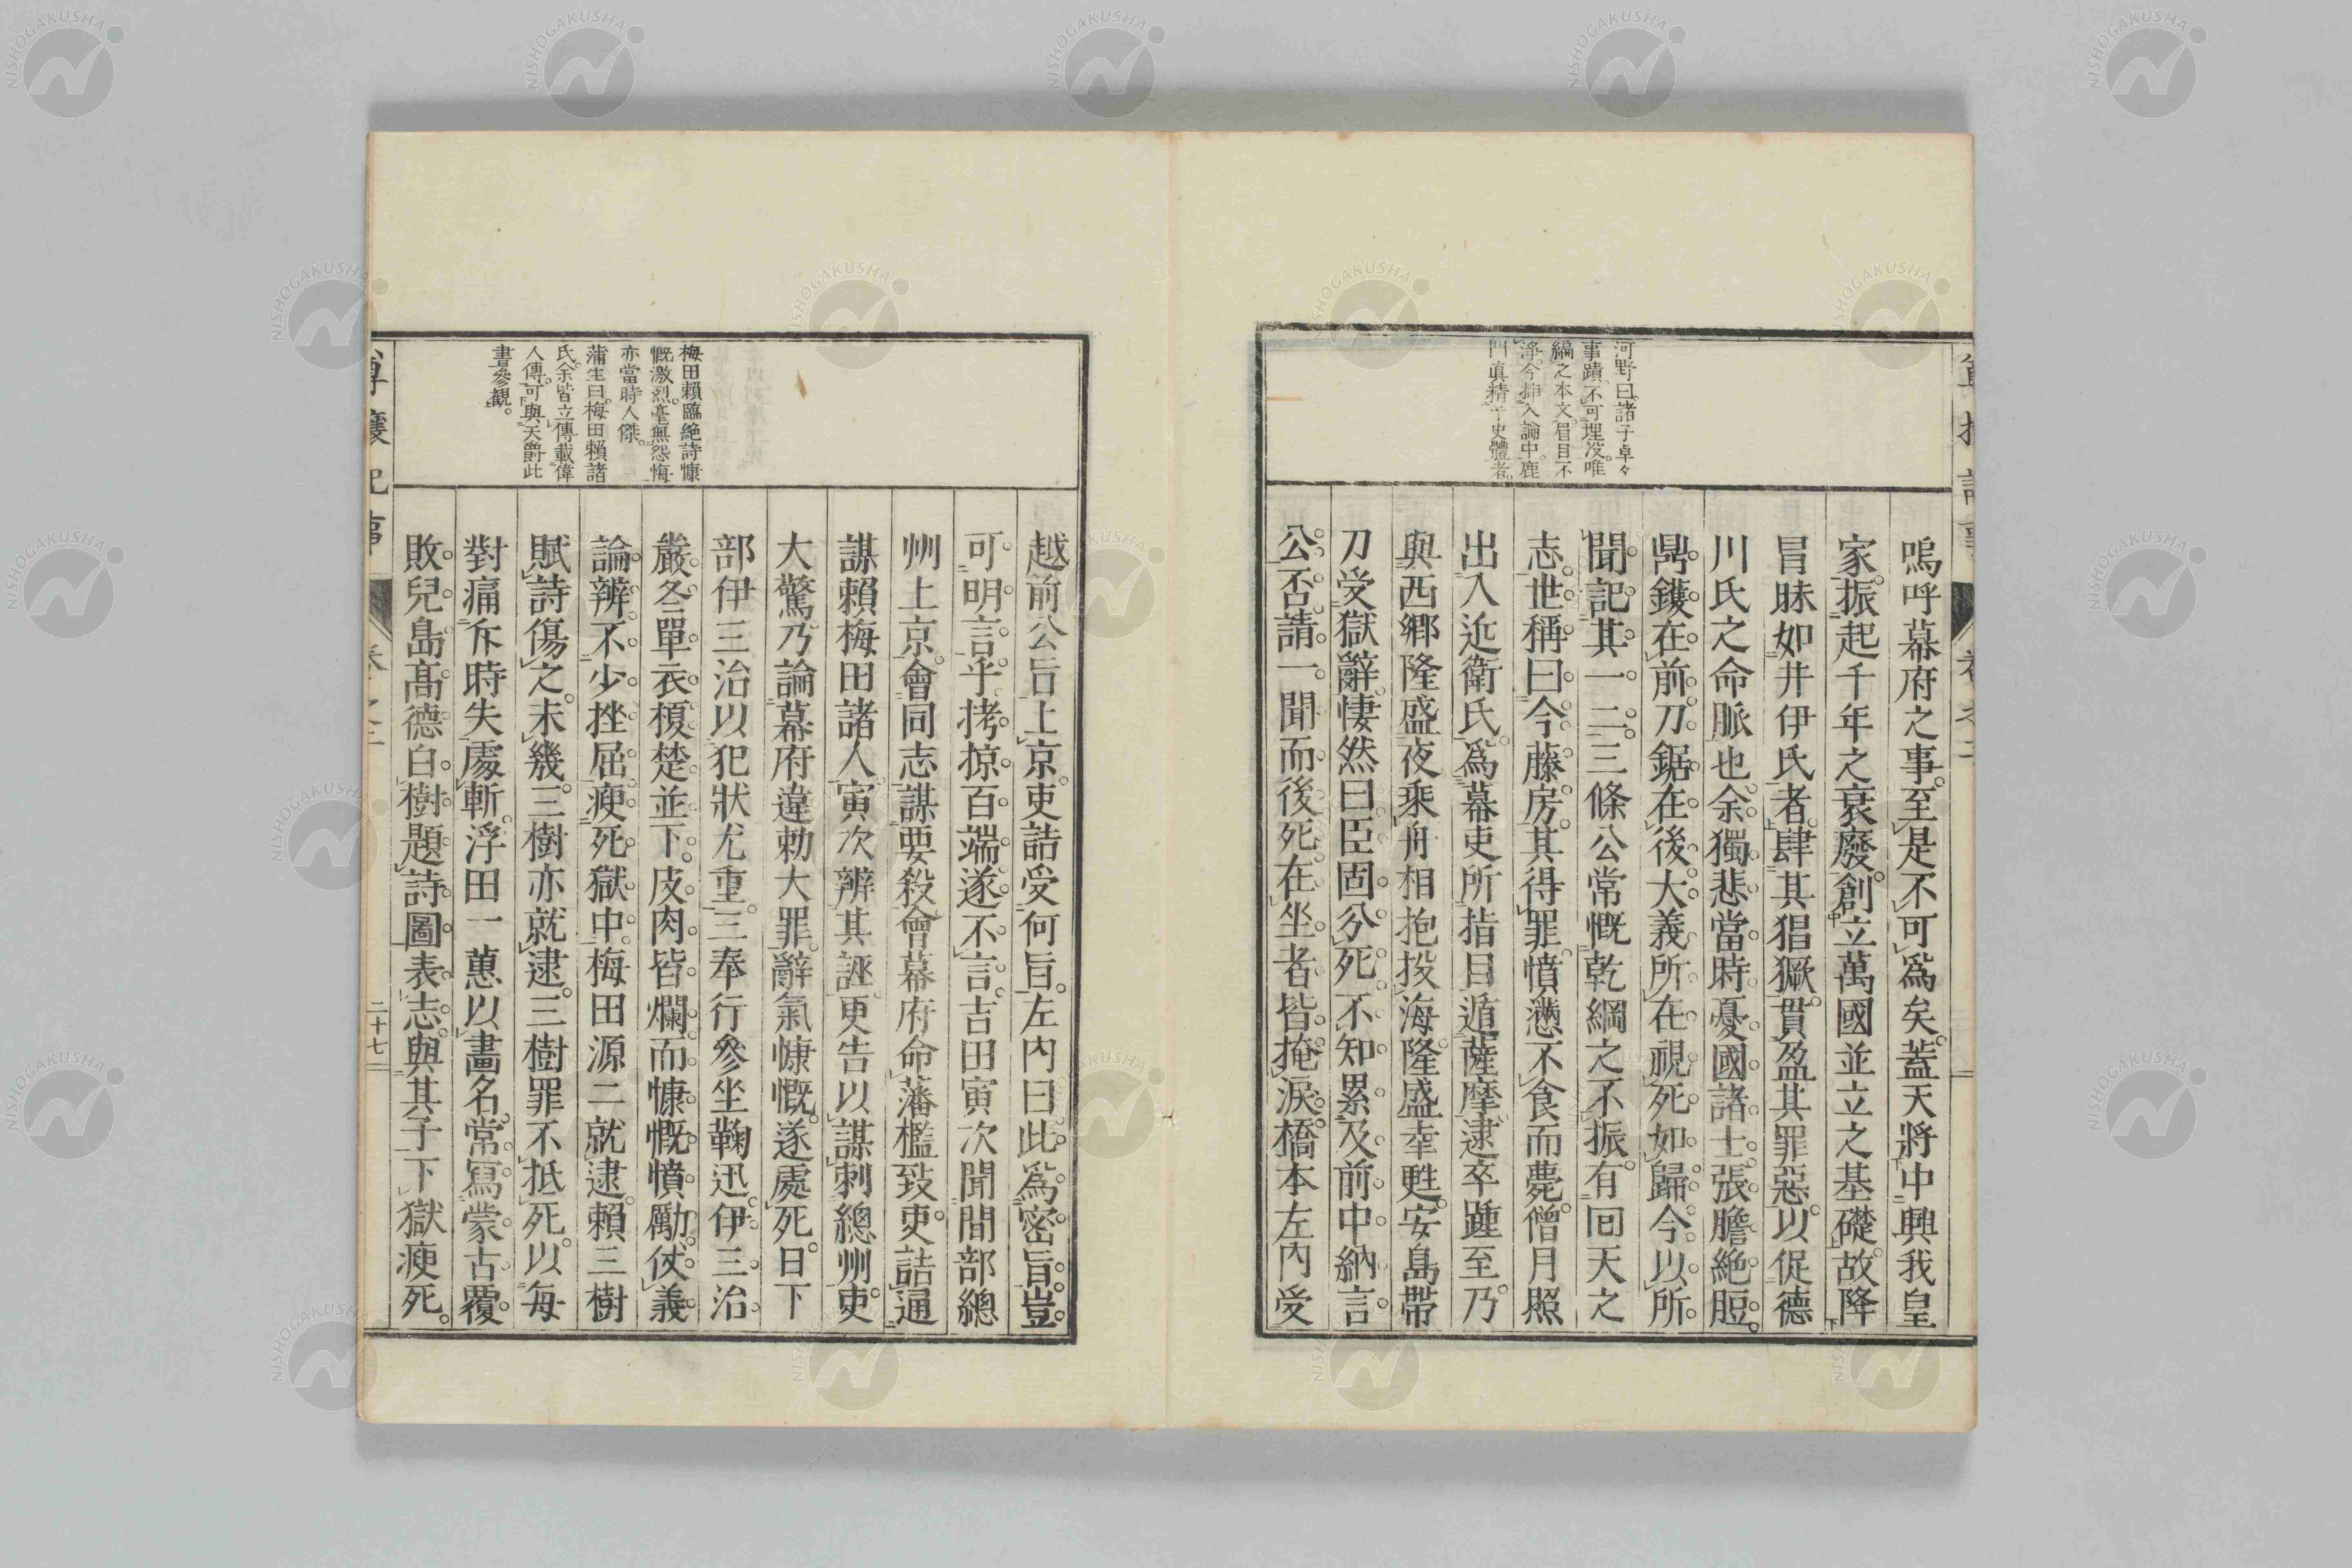 河野曰諸子卓々
事蹟不可埋没唯
編之本文眉目不
淨今挿入論中鹿
門眞精于史體者
嗚呼幕府之事。至是不可爲矣。蓋天將中興我皇
家。振起千年之衰廢。創立萬國並立之基礎。故降
冒昧如井伊氏者。肆其猖獗。貫盈其罪惡。以促德
川氏之命脈也。余獨悲當時憂國諸士。張膽絶脰。
鼎鑊在前。刀鋸在後。大義所在。視死如歸。今以所
聞。記其一二。三條公常慨乾綱之不振。有回天之
志。世稱曰今藤房。其得罪。憤懣不食而薨。僧月照
出入近衛氏。爲幕吏所指目。遁薩摩。逮卒踵至。乃
與西郷隆盛夜乘舟相抱投海。隆盛幸甦。安島帶
刀受獄辭。悽然曰。臣固分死。不知累及前中納言
公否。請一聞而後死。在坐者皆掩涙。橋本左内受
越前公旨上京。吏詰受何旨。左内曰。此爲密旨。豈
可明言乎。拷掠百端。遂不言。吉田寅次聞間部總
州上京。會同志謀要殺。會幕府命藩檻致。吏詰通
謀賴梅田諸人。寅次辨其誣。更告以謀刺總州。吏
大驚。乃論幕府違勅大罪。辭氣慷慨。遂處死。日下
部伊三治以犯狀尤重。三奉行參坐鞠迅。伊三治
嚴冬單衣。榎楚並下。皮肉皆爛。而慷慨憤勵。仗義
論辨。不少挫屈。瘐死獄中。梅田源二就逮。賴三樹
賦詩傷之。未幾。三樹亦就逮。三樹罪不抵死。以毎
對痛斥時失處斬。浮田一蕙以畵名。常寫蒙古覆
敗兒島高德白樹題詩圖表志。與其子下獄瘐死。
梅田賴臨絶詩慷
慨激烈毫無怨悔
亦當時人傑
蒲生曰梅田賴諸
氏余皆立傳載偉
人傳可與天爵此
書參觀
尊攘紀事
卷之二
二十七